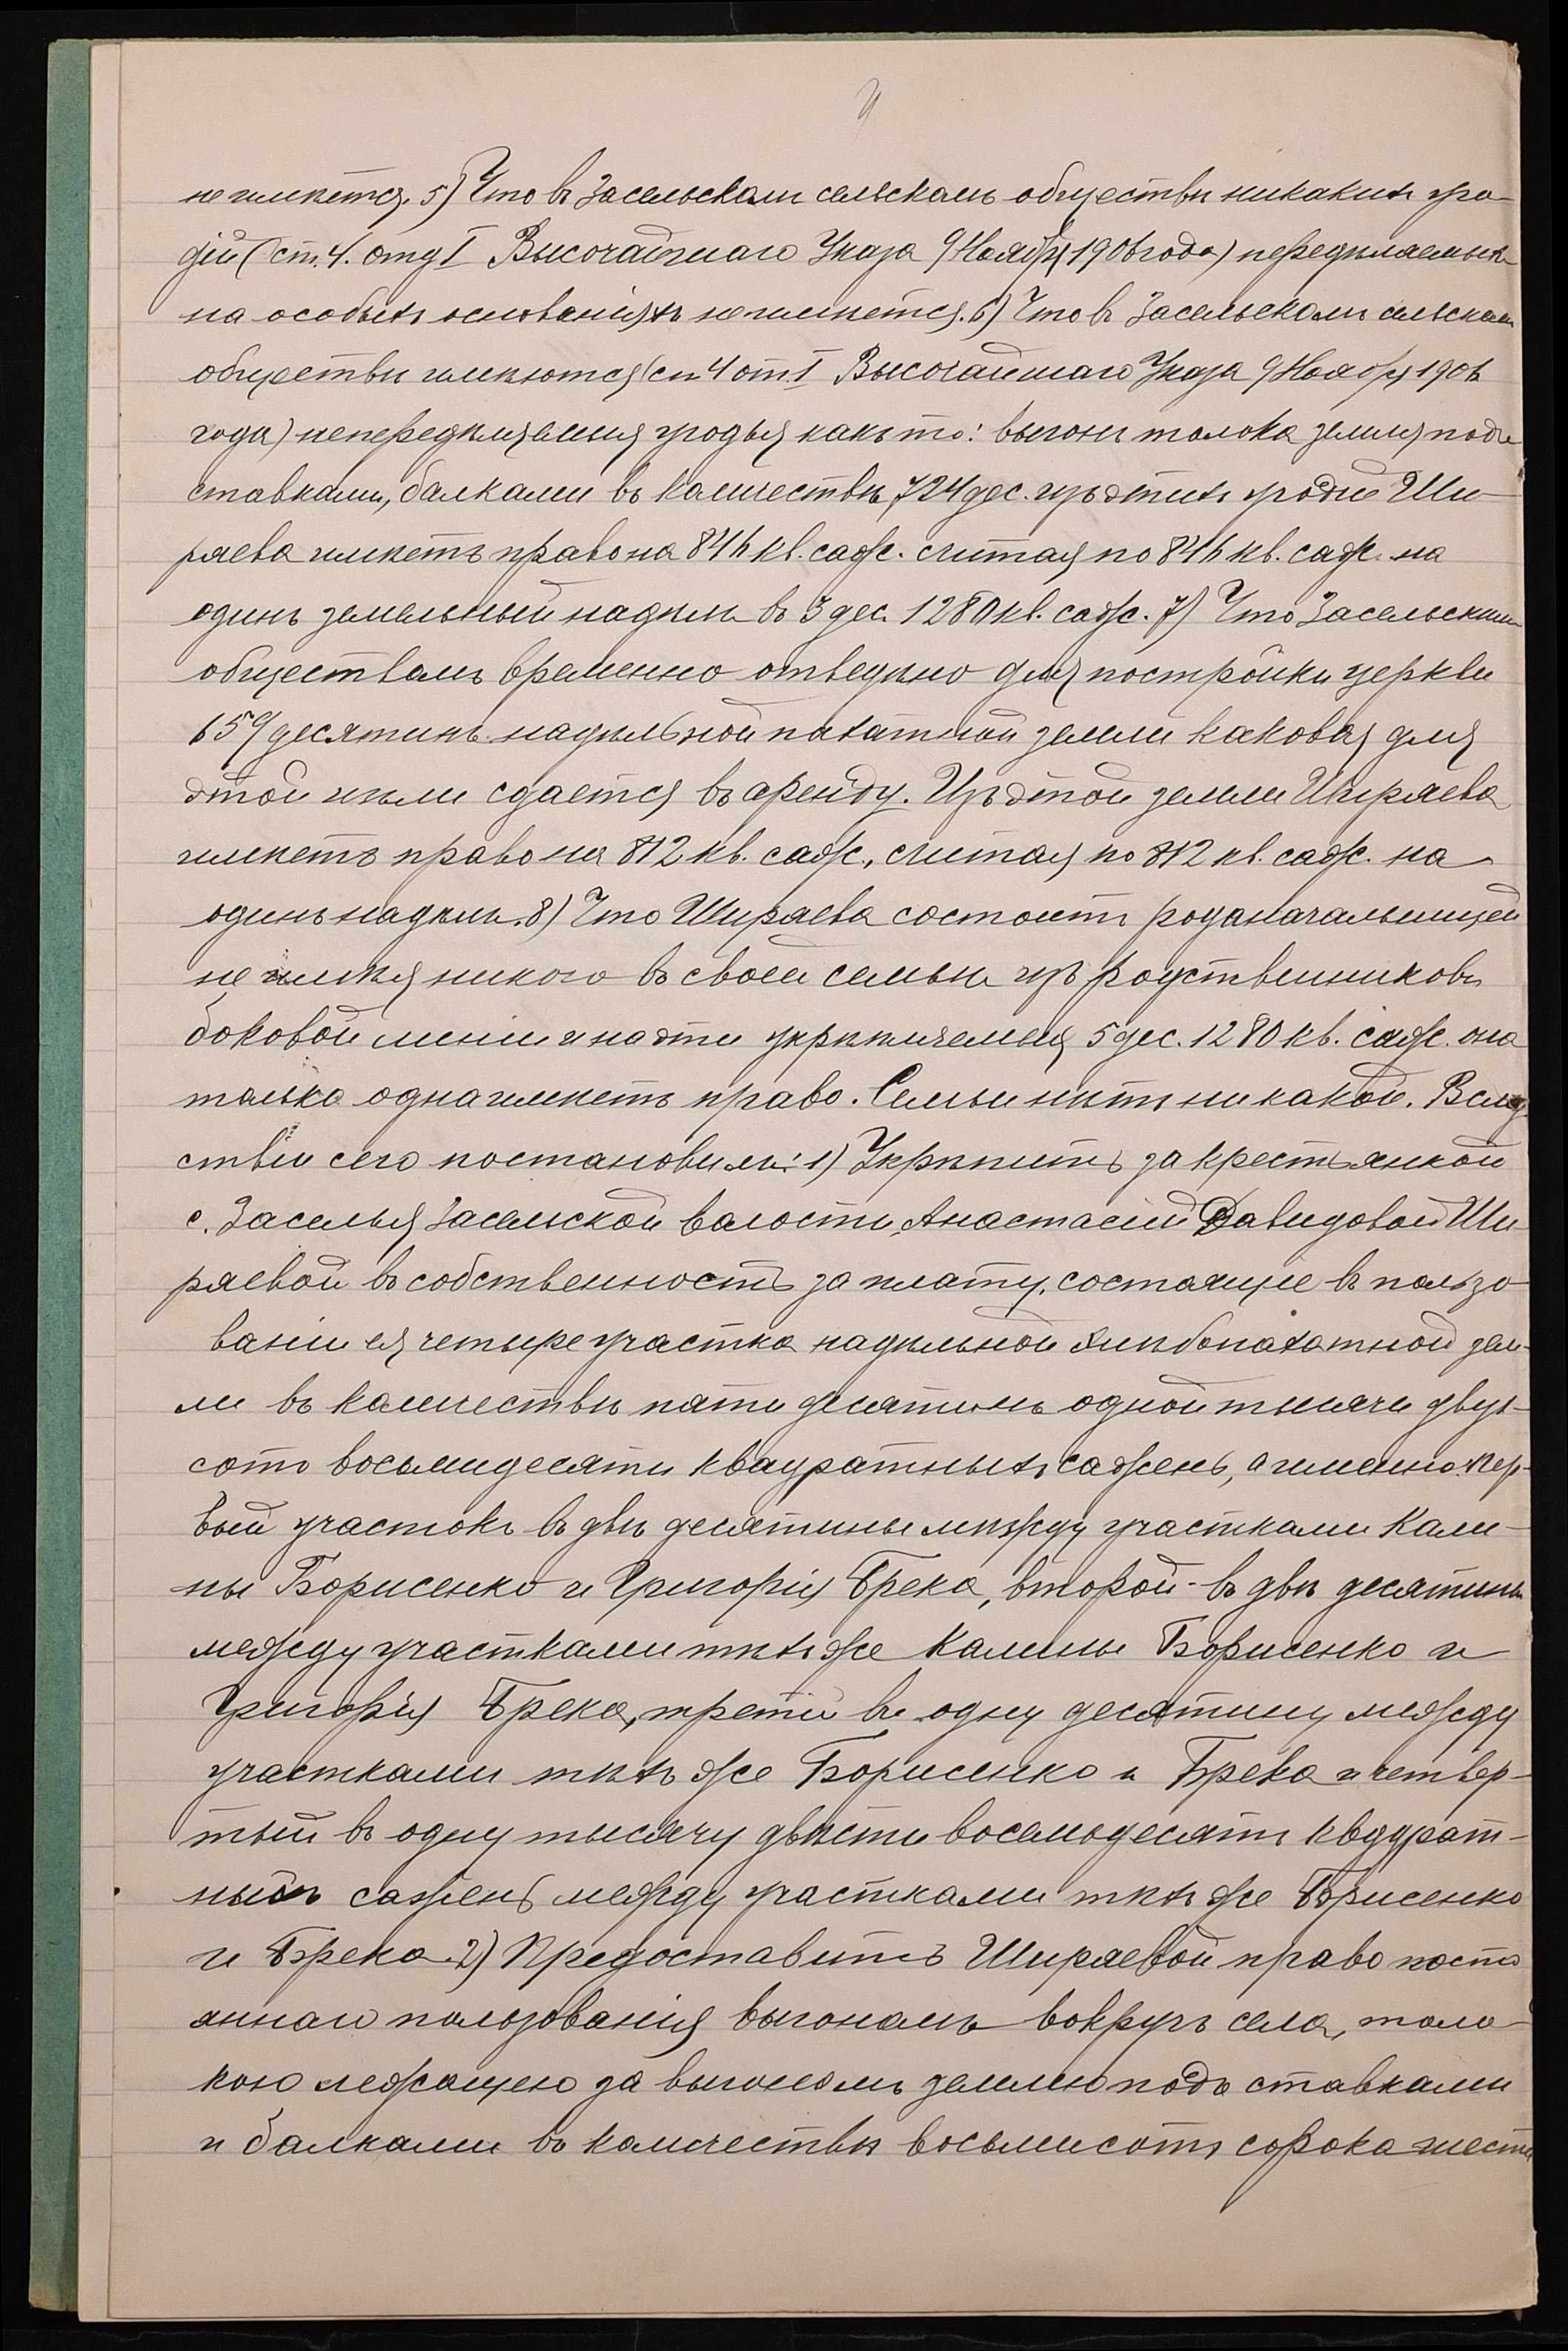 не имѣется. 5) Что въ Засельскомъ сельскомъ обществѣ никакихъ уго-
дій (ст. 4. отд I Высочайшаго Указа 9 Ноября 1906 года) передѣляемыхъ
на особыхъ основаніяхъ не имѣется. 6) Что въ Засельскомъ сельскомъ
обществѣ имѣются (ст 4 от. I Высочайшаго Указа 9 Ноября 1906
года) непередѣляемыя угодья какъ то: выгонъ толока земля подъ
ставками, балками въ количествѣ 724 дес. изъ этихъ угодій Ши-
ряева имѣетъ право на 846 кв. саж. считая по 846 кв. саж. на
одинъ земельный надѣлъ въ 3 дес. 1280 кв. саж. 7) Что Засельскимъ
обществомъ временно отведено для постройки церкви
659 десятинъ надѣльной пахатной земли каковая для
этой цѣли сдается въ аренду. Изъ этой земли Ширяева
имѣетъ право на 812 кв. саж., считая по 812 кв. саж. на
одинъ надѣлъ. 8) Что Ширяева состоитъ родоначальницей
не имѣя никого въ своей семьѣ изъ родственниковъ
боковой линіи и на эти укрѣпляемыя 5 дес. 1280 кв. саж. она
только одна имѣетъ право. Семьи нѣтъ никакой. Вслѣд
ствіи сего постановили: 1) Укрѣпить за крестьянкой
с. Заселья Засельской волости, Анастасіей Давидовой Ши-
ряевой въ собственность за плату, состоящіе въ пользо-
ваніи ея четыре участка надѣльной хлѣбопахатной зем-
ли въ количествѣ пяти десятинъ одной тысячи двух-
сотъ восьмидесяти квадратныхъ сажень, а именно: пер-
вый участокъ въ двѣ десятины между участками Кали-
ны Борисенко и Григорія Брека, второй - въ двѣ десятины
между участками тѣхъ же Калины Борисенко и
Григорія Брека, третій въ одну десятину между
участками тѣхъ же Борисенко и Брека и четвер-
тый въ одну тысячу двѣсти восемьдесятъ квадрат-
ныхъ сажень между участками тѣхъ же Борисенко
и Брека. 2) Предоставить Ширяевой право посто
яннаго пользованія выгономъ вокругъ села, толо-
кою лежащею за выгономъ землею подъ ставками
и балками въ количествѣ восьмисотъ сорока шести